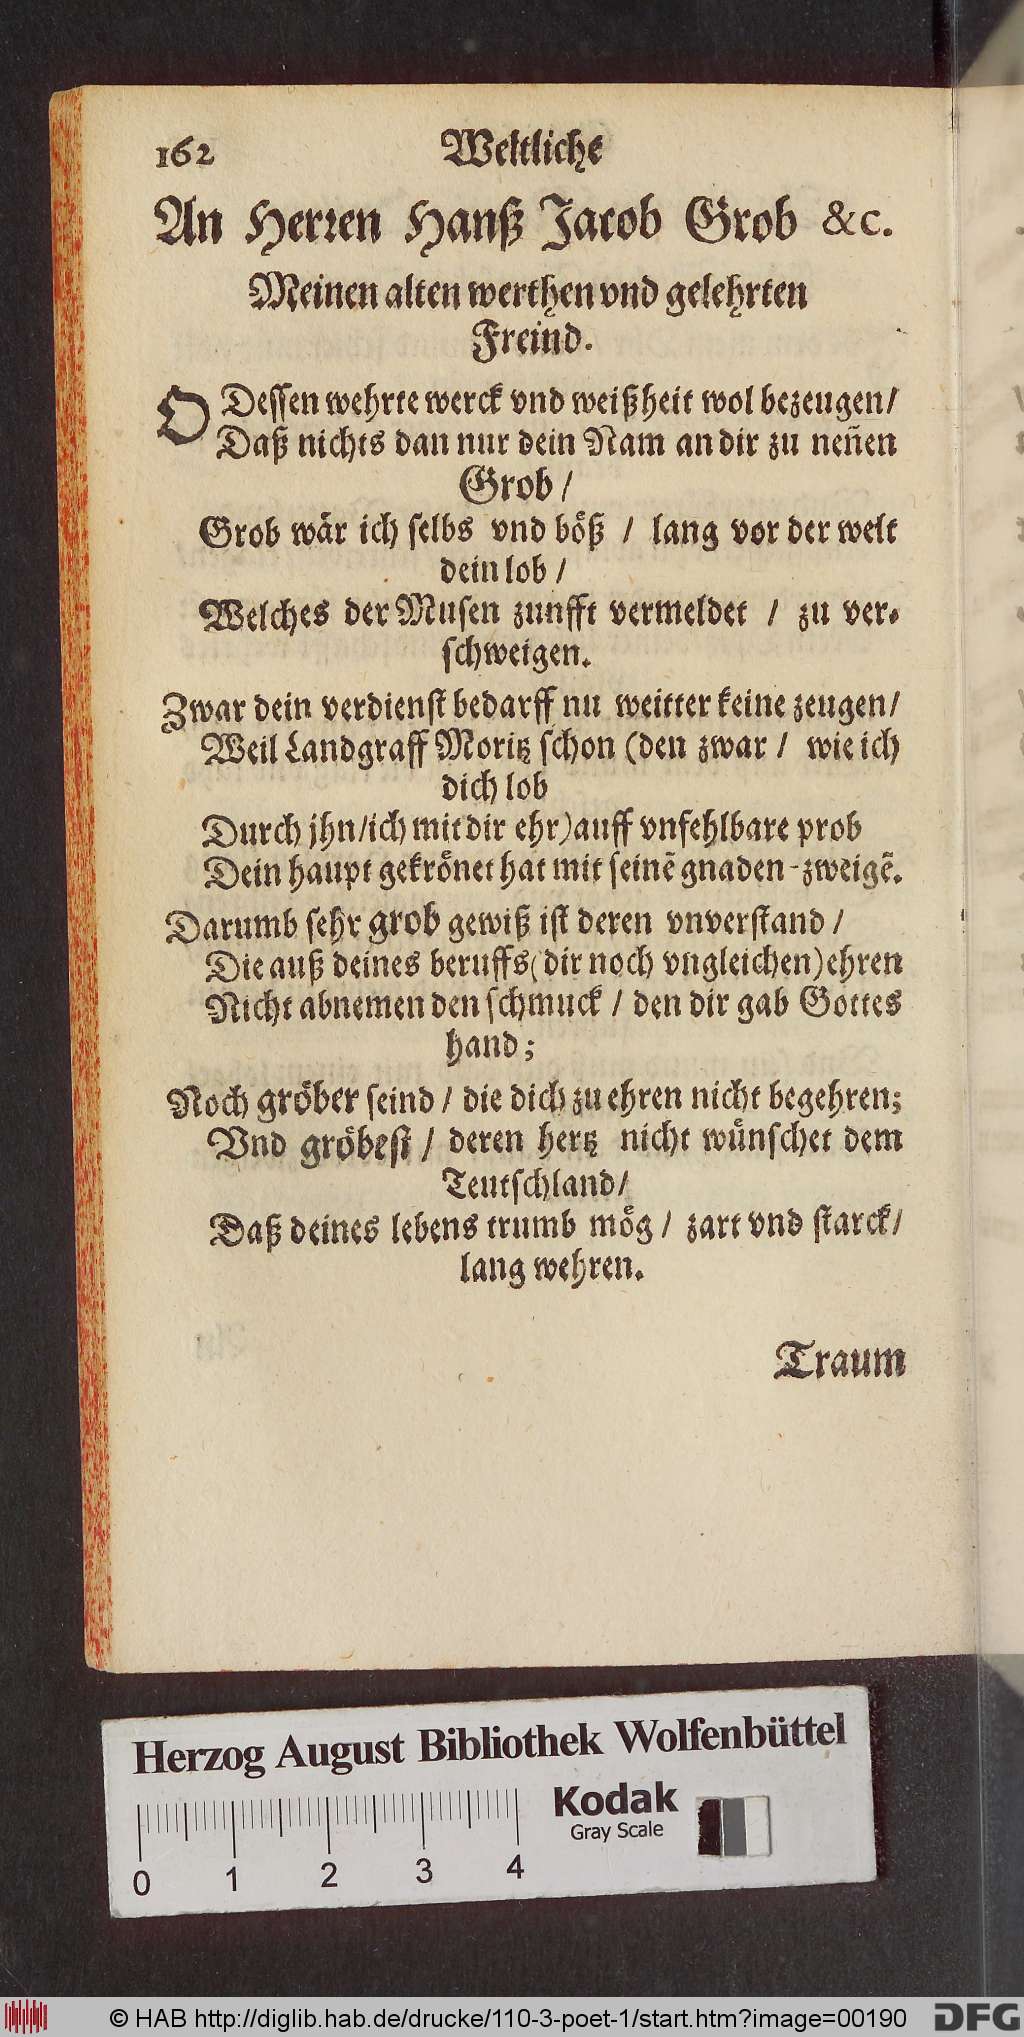 162 Weltliche
An Herren Hanß Jacob Grob &c.
Meinen alten werthen vnd gelehrten
Freind.
O Dessen wehrte werck vnd weißheit wol bezeugen/
Daß nichts dan nur dein Nam an dir zu neñen
Grob /
Grob wår ich selbs vnd bőß / lang vor der welt
dein lob /
Welches der Musen zunfft vermeldet / zu ver-
schweigen.
Zwar dein verdienst bedarff nu weitter keine zeugen/
Weil Landgraff Moritz schon (den zwar / wie ich
dich lob
Durch jhn/ich mit dir ehr) auff vnfehlbare prob
Dein haupt gekrönet hat mit seinē gnaden-zweigē.
Darumb sehr grob gewiß ist deren vnverstand /
Die auß deines beruffs (dir noch vngleichen) ehren
Nicht abnemen den schmuck / den dir gab Gottes
hand;
Noch gröber seind / die dich zu ehren nicht begehren;
Vnd gröbest / deren hertz nicht wünschet dem
Teutschland/
Daß deines lebens trumb mög / zart vnd starck/
lang wehren.
Traum
Herzog August Bibliothek Wolfenbüttel
Kodak
Gray Scale
0 1 2 3 4
© HAB http://diglib.hab.de/drucke/110-3-poet-1/start.htm?image=00190 DFG